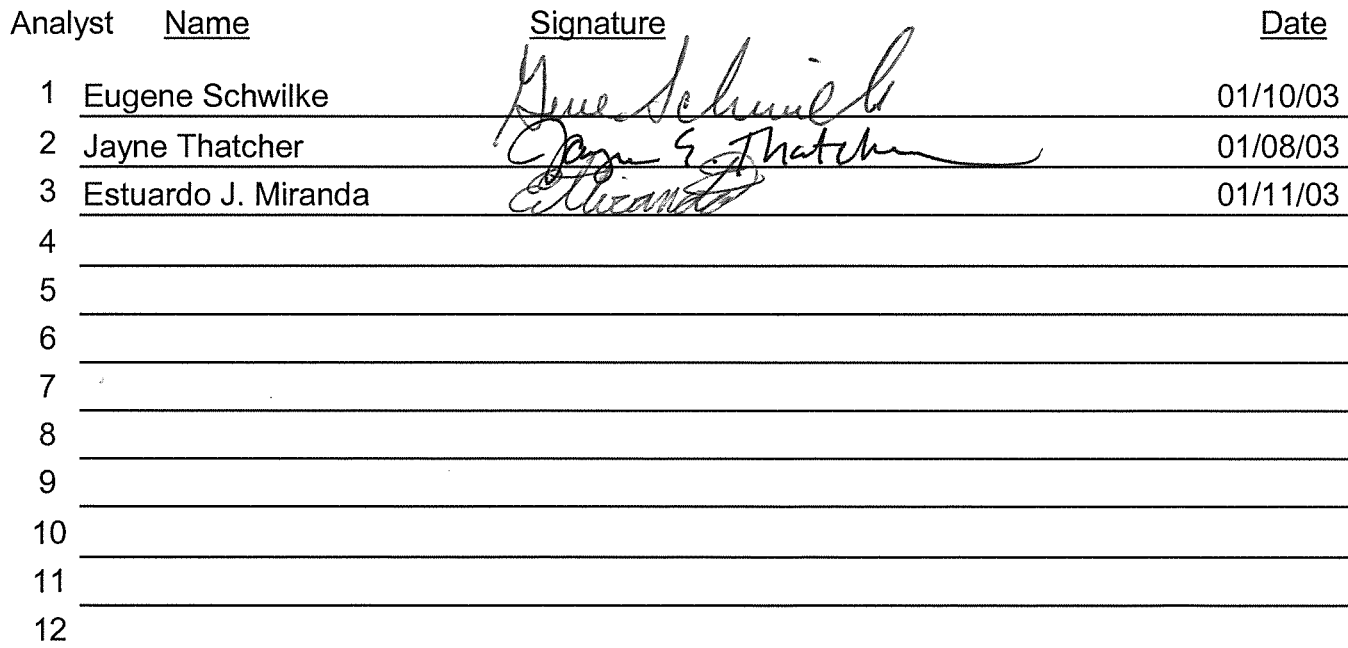 Analyst Name Signature Date
1 Eugene Schwilke Gene Schwilke 01/10/03
2 Jayne Thatcher Jayne E Thatcher 01/08/03
3 Estuardo J. Miranda EMiranda 01/11/03
4
5
6
7
8
9
10
11
12